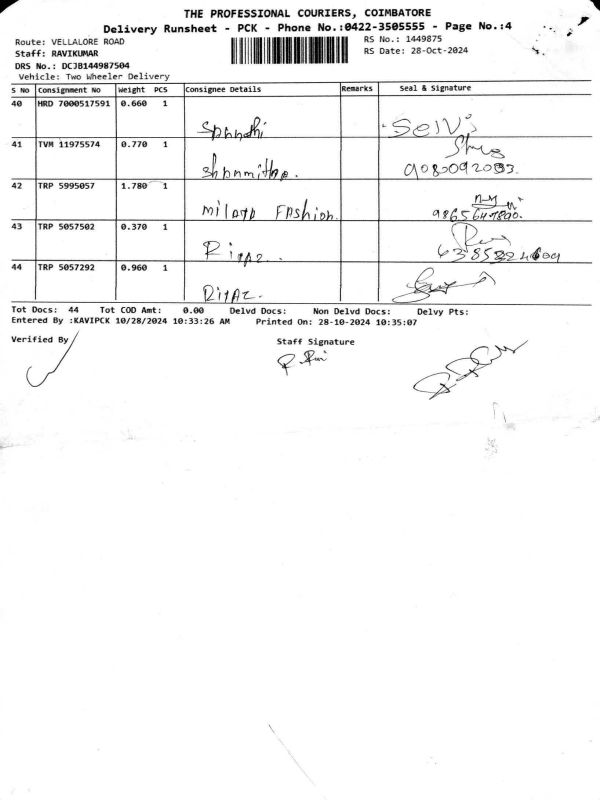 THE PROFESSIONAL COURIERS, COIMBATORE
Delivery Runsheet - PCK - Phone No.:0422-3505555 - Page No.:4
Route: VELLALORE ROAD
RS No.: 1449875
Staff: RAVIKUMAR
RS Date: 28-Oct-2024
DRS No.: DCJB144987504
Vehicle: Two Wheeler Delivery
S No Consignment No Weight PCS Consignee Details Remarks Seal & Signature
40 HRD 7000517591 0.660 1
Selvi
41 TVM 11975574 0.770 1
shanmitha.
42 TRP 5995057 1.780 1
Fashion.
43 TRP 5057502 0.370 1
Riyaz..
44 TRP 5057292 0.960 1
Riyaz.
Tot Docs: 44 Tot COD Amt: 0.00 Delvd Docs: Non Delvd Docs: Delvy Pts:
Entered By :KAVIPCK 10/28/2024 10:33:26 AM Printed On: 28-10-2024 10:35:07
Verified By
Staff Signature